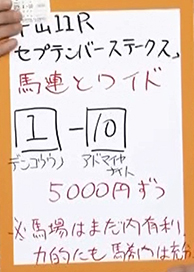 中山11R
セプテンバーステークス
馬連とワイド
1-10
デンコウウノ アドマイヤナイト
5000円ずつ
※馬場はまだ内有利
力的にも馬券内は充分